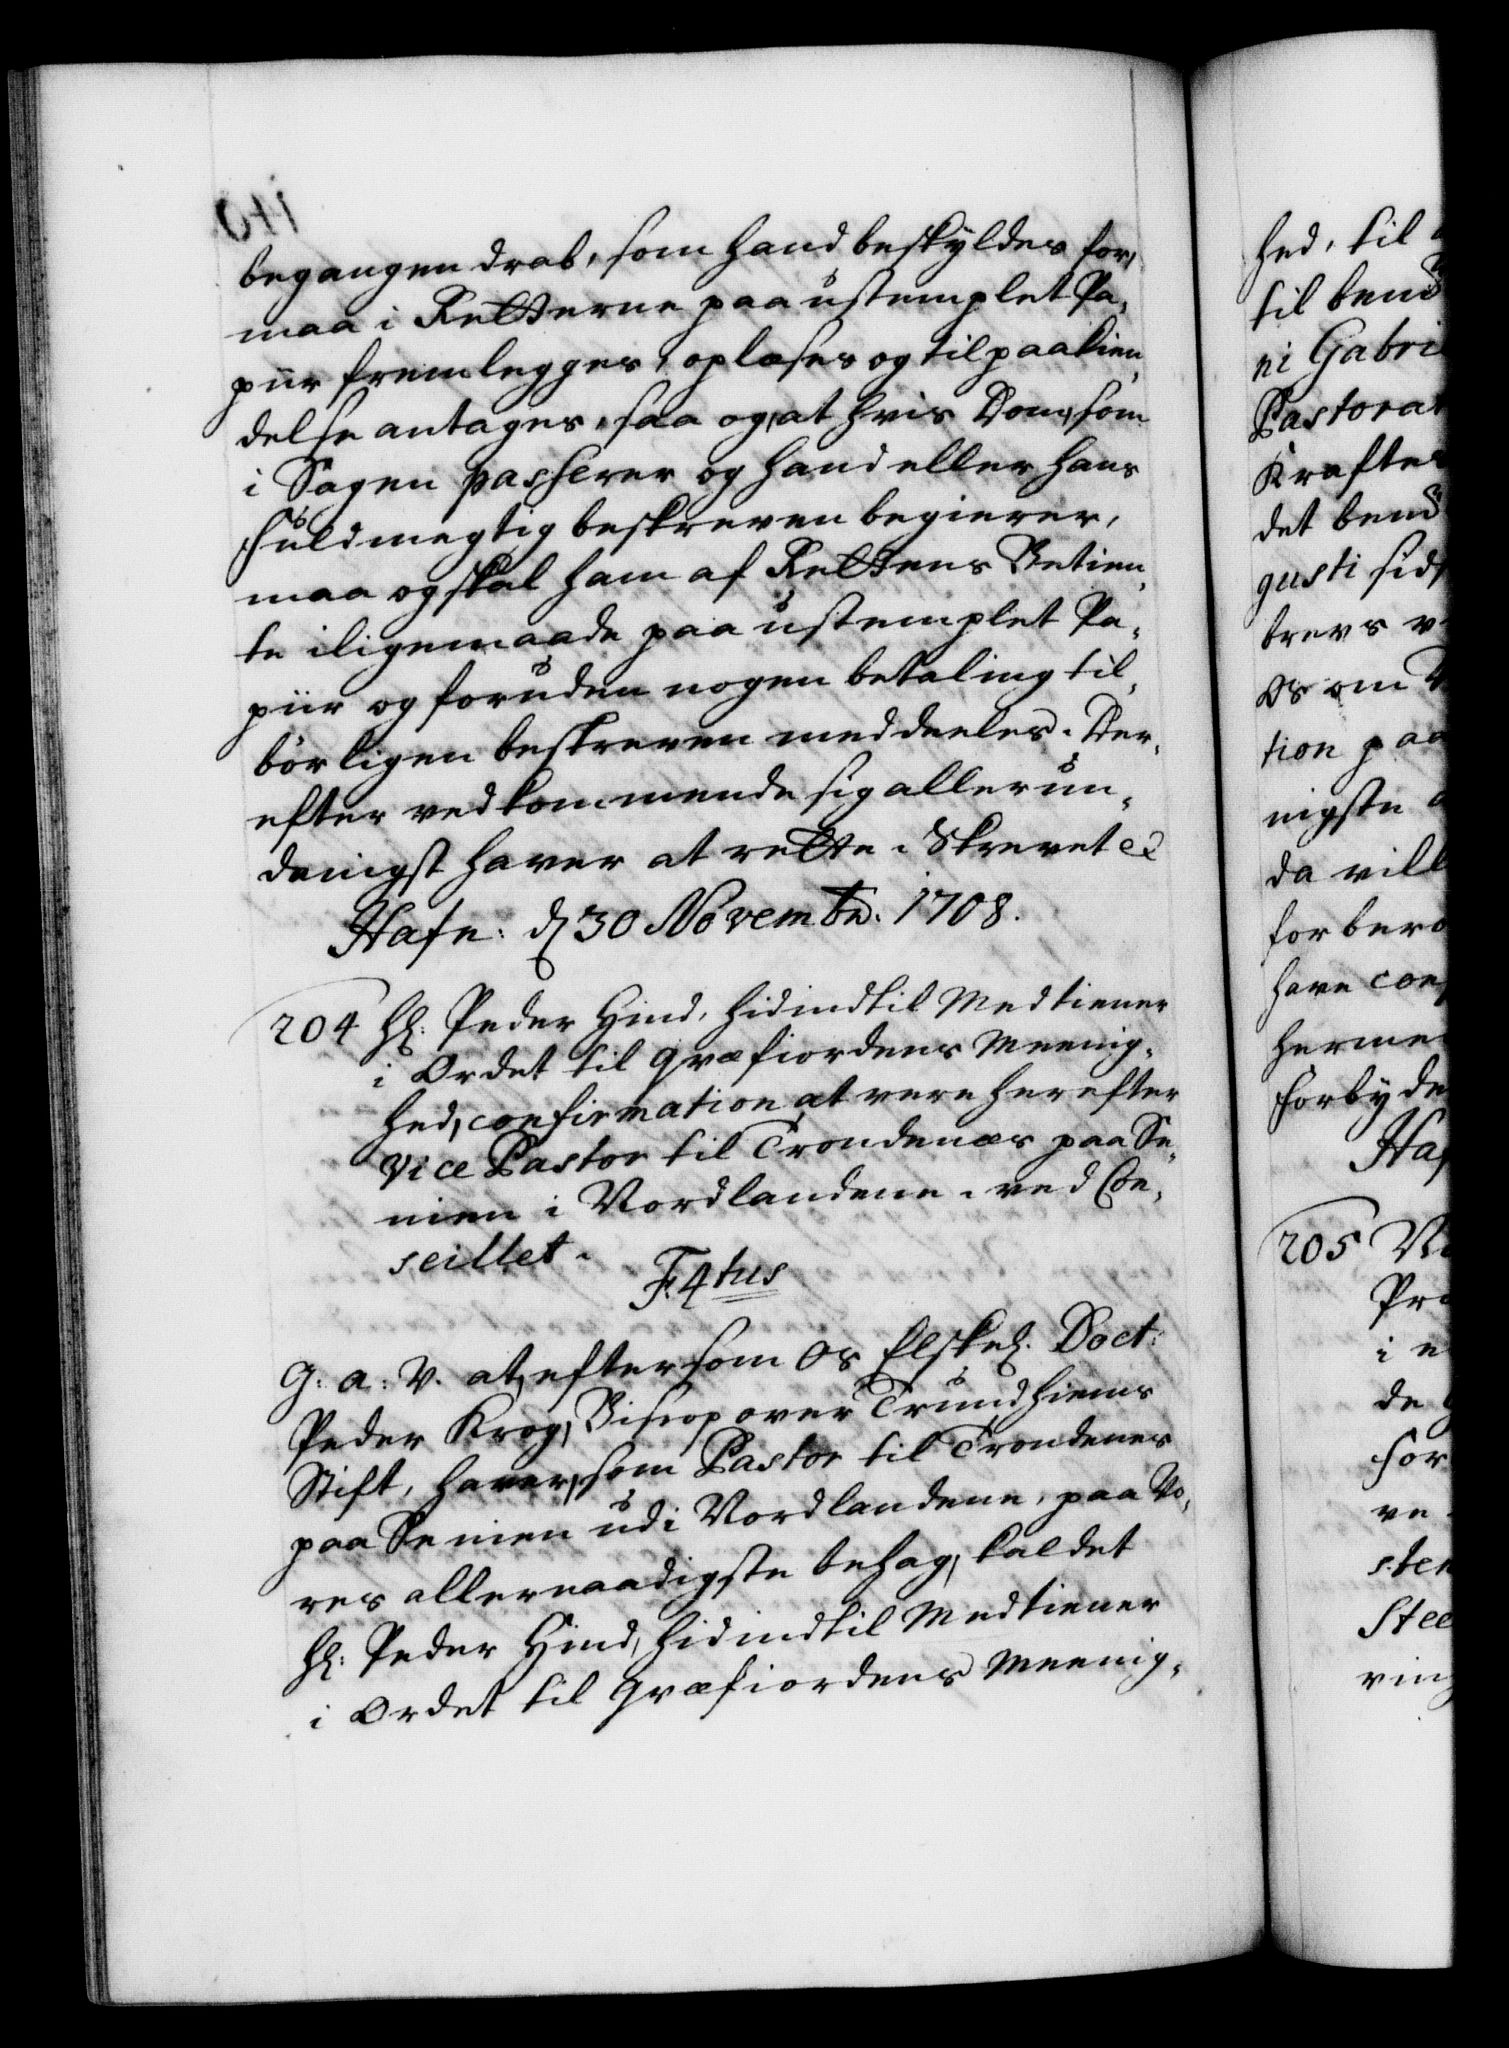 begangen drab, som hand beskyldes for,
maa i Retterne paa ustemplet Pa,
piir fremlegges, oplæses og til paakien,
delse antages, saa og, at hvis Dom, som
i Sagen passerer og hand eller hans
fuldmegtig beskreven begierer,
maa og skal ham af Rettens Betien,
te iligemaade paa ustemplet Pa,
piir og foruden nogen betaling til,
börligen beskreven meddeeles. Der,
efter vedkommende sig allerun,
denigst haver at rette. Skrevet
Hafn: d 30 Novembr. 1708.
204 Hr: Peder Hind, hidindtil Medtiener
i Ordet til Græfiordens Meenig,
hed, confirmation at være herefter
Vice Pastor til Trondenæs paa Se,
nien i Nordlandene. ved Con,
seillet.
F. 4tus
G: a: V. at eftersom Os Elskel. Doct:
Peder Krog, Biscop over Trundhiems
Stift, haver, som Pastor til Trondenes
paa Senien udi Nordlandene, paa Vo,
res allernaadigste behag, kaldet
Hr: Peder Hind, hidindtil Medtiener
i Ordet til Græfiordens Meenig,
hed, til
til bem
ni Gabri
Pastorat
Krafte
det bem
gusti sid
brevs
Os om
tion paa
nigste
da vill
for ber
have con
herme
forbyde
Haf
205
Pr
i
de
for
ve
sten
Stee
ring